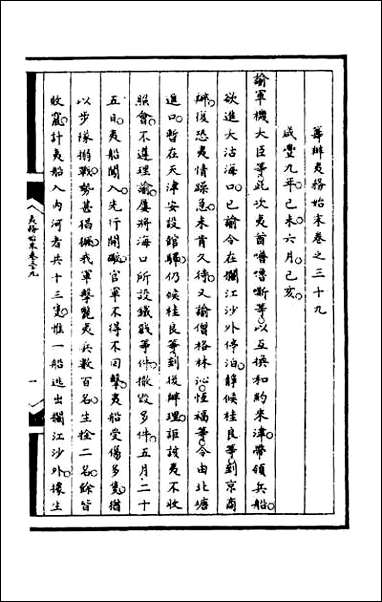 籌辦夷務始末卷之三十九
咸豐九年己未六月己亥
諭軍機大臣等此次夷酋嚕嘶等以互換和約來津帶領兵船
欲進大沽海口已諭令在攔江沙外停泊靜候桂良等到京商
辦後恐夷情躁急未肯久待又諭僧格林沁恒福等令由北塘
進口暫在天津安設館驛仍候桂良等到後辦理詎該夷不收
照會不遵理諭屢將海口所設鐵戧等件撤毀多件五月二十
五日夷船闖入先行開礮官軍不得不回擊夷船受傷多隻猶
以步隊搦戰勢甚猖獗我軍擊斃夷兵數百名生擒二名餘皆
收竄計夷船入內河者共十三隻惟一船逃出攔江沙外據生
夷務始末卷三九
一